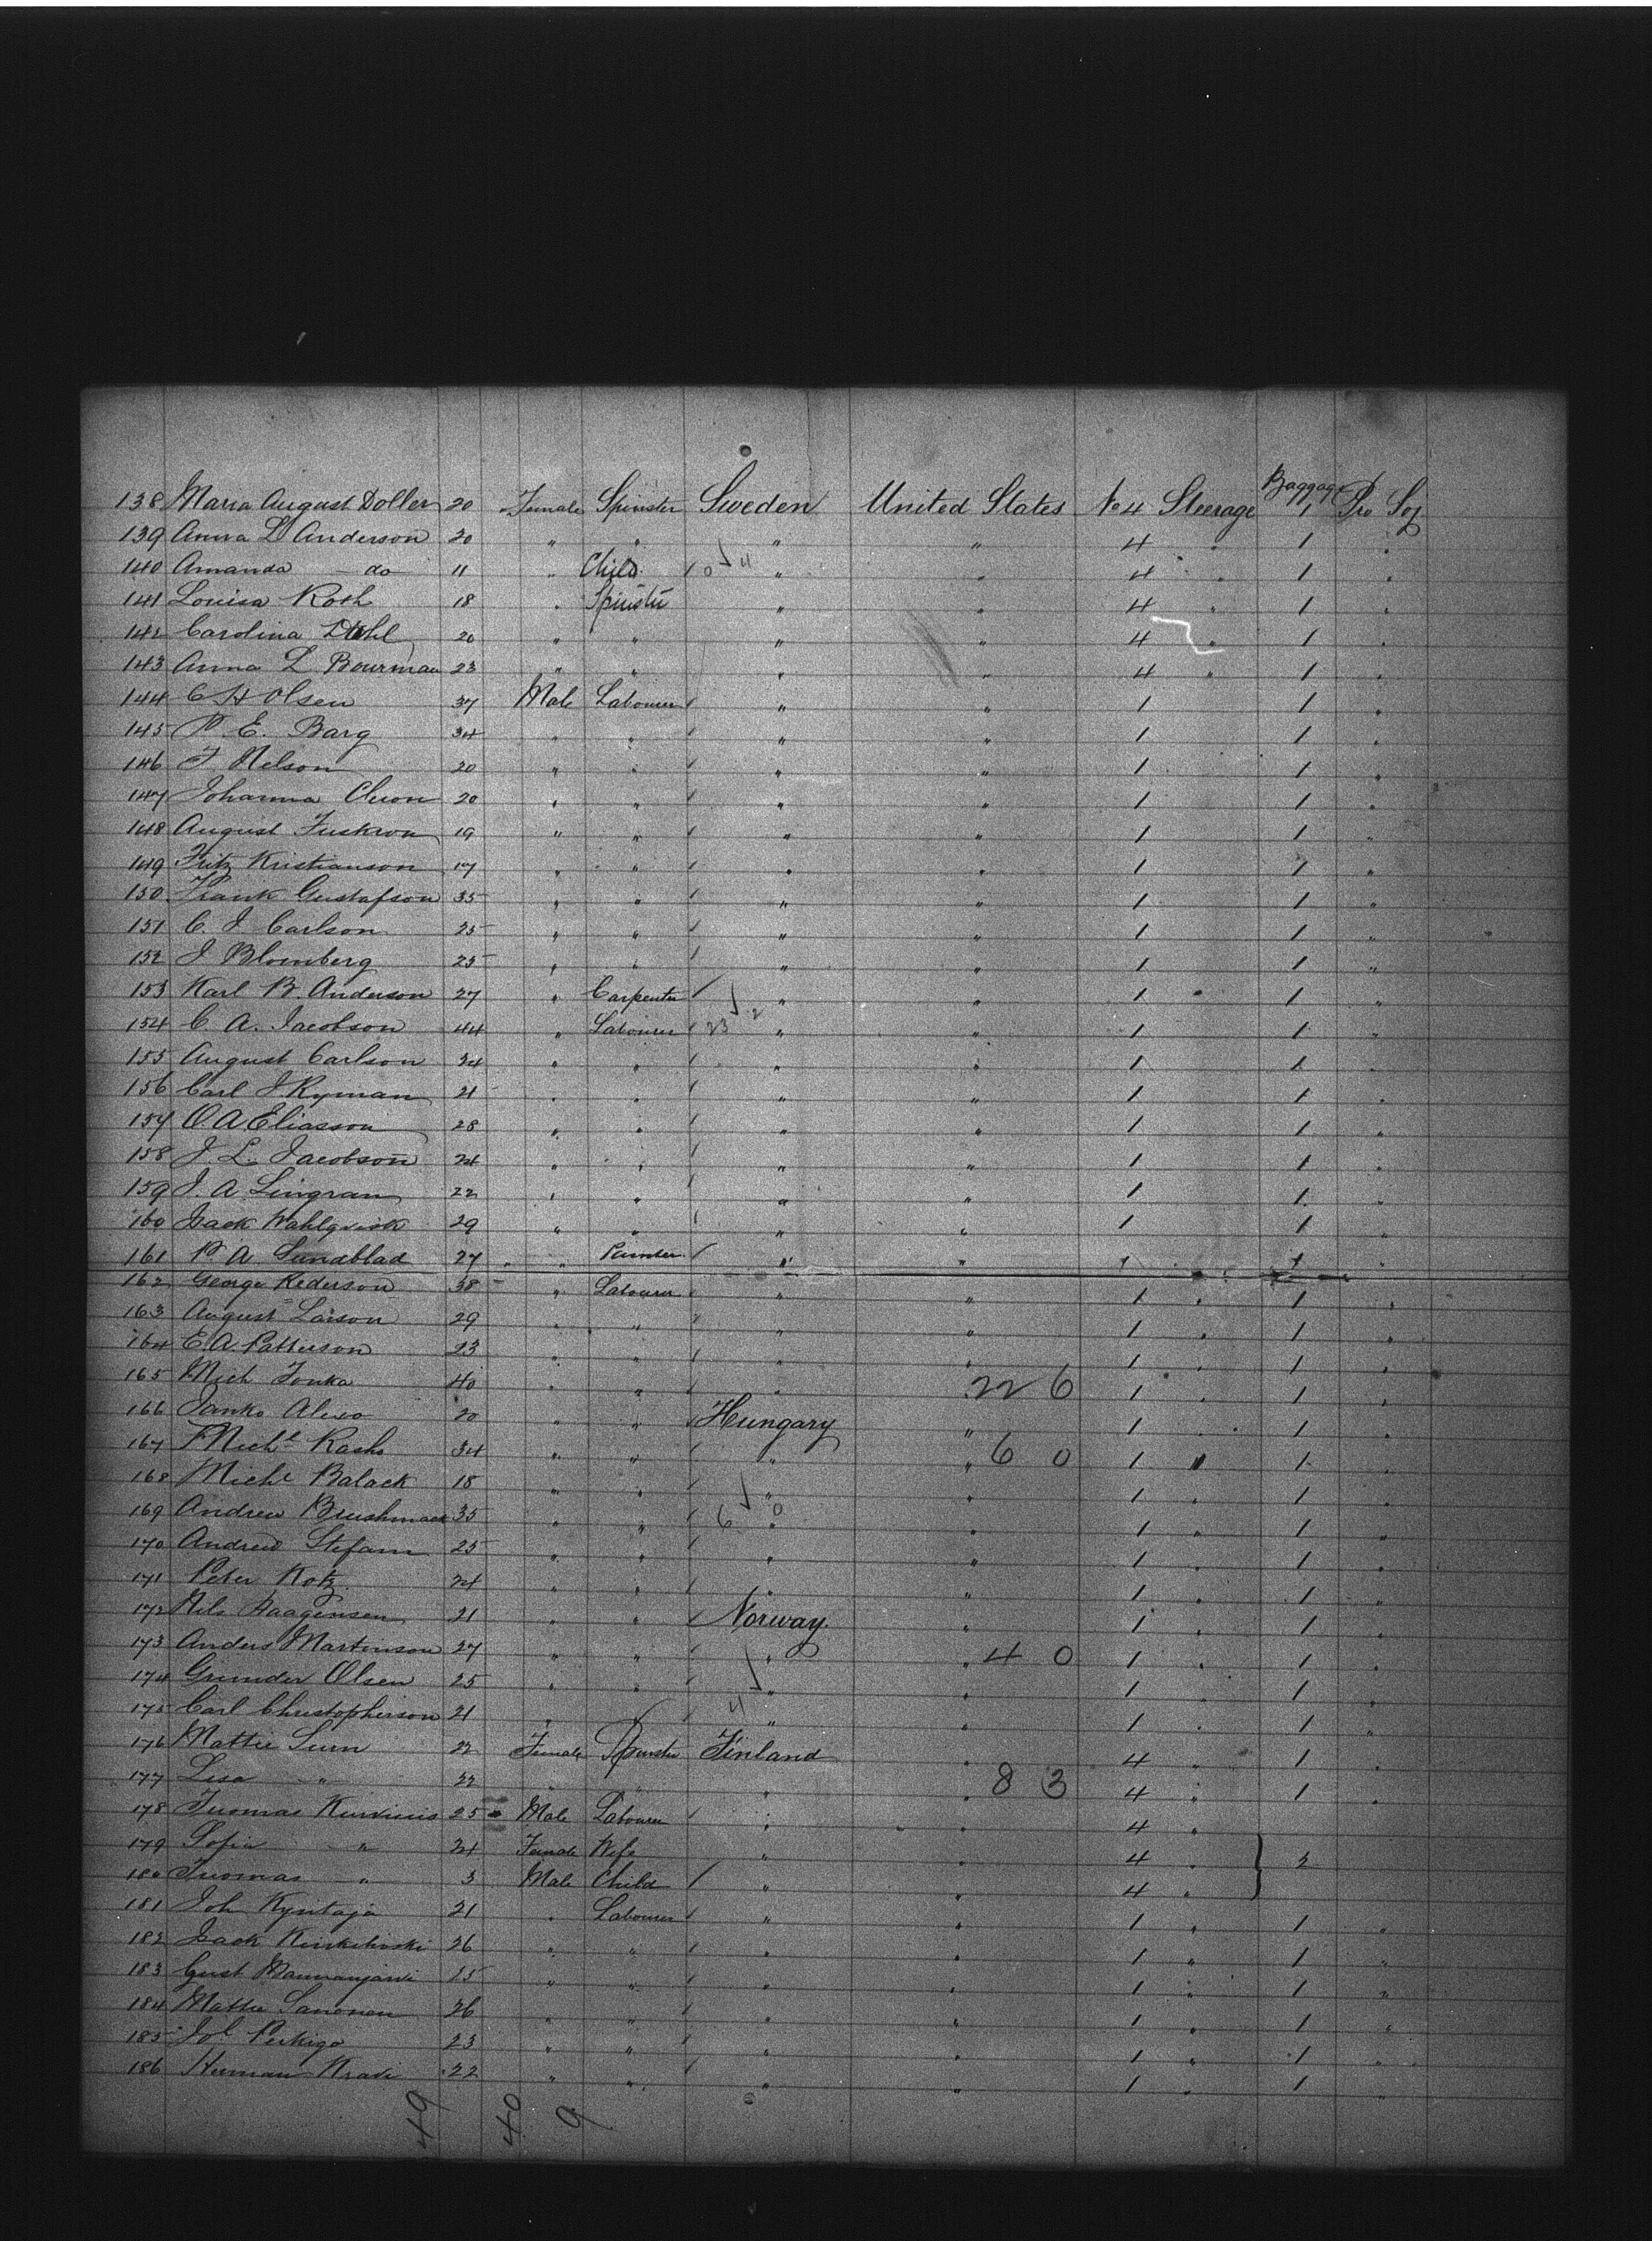 Baggage
138 Maria August Doller 20 Female Spinster Sweden United States No 4 Steerage 1 Pro Soj
139 Anna L Anderson 20 " " " " 4 " 1 "
140 Amanda do 11 " Child " " 4 " 1 "
141 Louisa Roth 18 " Spinster " " 4 " 1 "
142 Carolina Dahl 20 " " " " 4 " 1 "
143 Anna L Bourman 23 " " " " 4 " 1 "
144 C H Olsen 37 Male Labourer " " 1 1 "
145 P. E. Barg 34 " " " " 1 1 "
146 F Nelson 20 " " " " 1 1 "
147 Johanna 20 " " " " 1 1 "
148 August 19 " " " " 1 1 "
149 Fritz Kristianson 17 " " " " 1 1 "
150 Frank Gustafson 35 " " " " 1 1 "
151 C. J. Carlson 25 " " " " 1 1 "
152 J Blomberg 25 " " " " 1 1 "
153 Karl B. Anderson 27 " Carpenter " " 1 " 1 "
154 C. A. Jacobson 44 " Labourer 23 2 " " 1 1 "
155 August Carlson 34 " " " " 1 1 "
156 Carl J Ryman 21 " " " " 1 1 "
157 O. A Eliasson 28 " " " " 1 1 "
158 J. L. Jacobson 24 " " " " 1 1 "
159 J. A. Lingran 22 " " " " 1 1 "
160 Isack Wahlqvist 29 " " " " 1 1
161 P A Sundblad 27 " Painter " " 1 " 1 "
162 George Pederson 38 " Labourer " " 1 " 1 "
163 August Larson 29 " " " " 1 " 1 "
164 E. A. Patterson 23 " " " " 1 " 1 "
165 Mich Tonka 40 " " " 22 6 1 " 1 "
166 Janko 20 " " Hungary " 1 " 1 "
167 Michl Rash 34 " " " " 6 0 1 " 1 "
168 Michl Balack 18 " " " " 1 " 1 "
169 Andrew Brushmack 35 " " 6 0 " " 1 " 1 "
170 Andrew Stefam 25 " " " " 1 " 1 "
171 Peter Kotz 24 " " " " 1 " 1 "
172 Nils Haagensen 21 " " Norway. " 1 " 1 "
173 Anders Martinson 27 " " " " 4 0 1 " 1 "
174 Gunder Olsen 25 " " " " 1 " 1 "
175 Carl Christopherson 21 " " 4 " " 1 " 1 "
176 Mattie 22 Female Spinster Finland " 4 " 1 "
177 Lisa " 22 " " " " 8 3 4 " 1 "
178 Tuomas 25 Male Labourer " " 4 "
179 Sofia " 24 Female Wife " " 4 " 2
180 Tuomas " 3 Male Child " " 4 "
181 Joh Kyntaja 21 " Labourer " " 1 " 1 "
182 Isack 26 " " " " 1 " 1 "
183 Gust 25 " " " " 1 " 1 "
184 Mattie Sanonen 26 " " " " 1 " 1 "
185 Joh 23 " " " " 1 " 1 "
186 Herman 22 " " " " 1 " 1 "
49 40 9